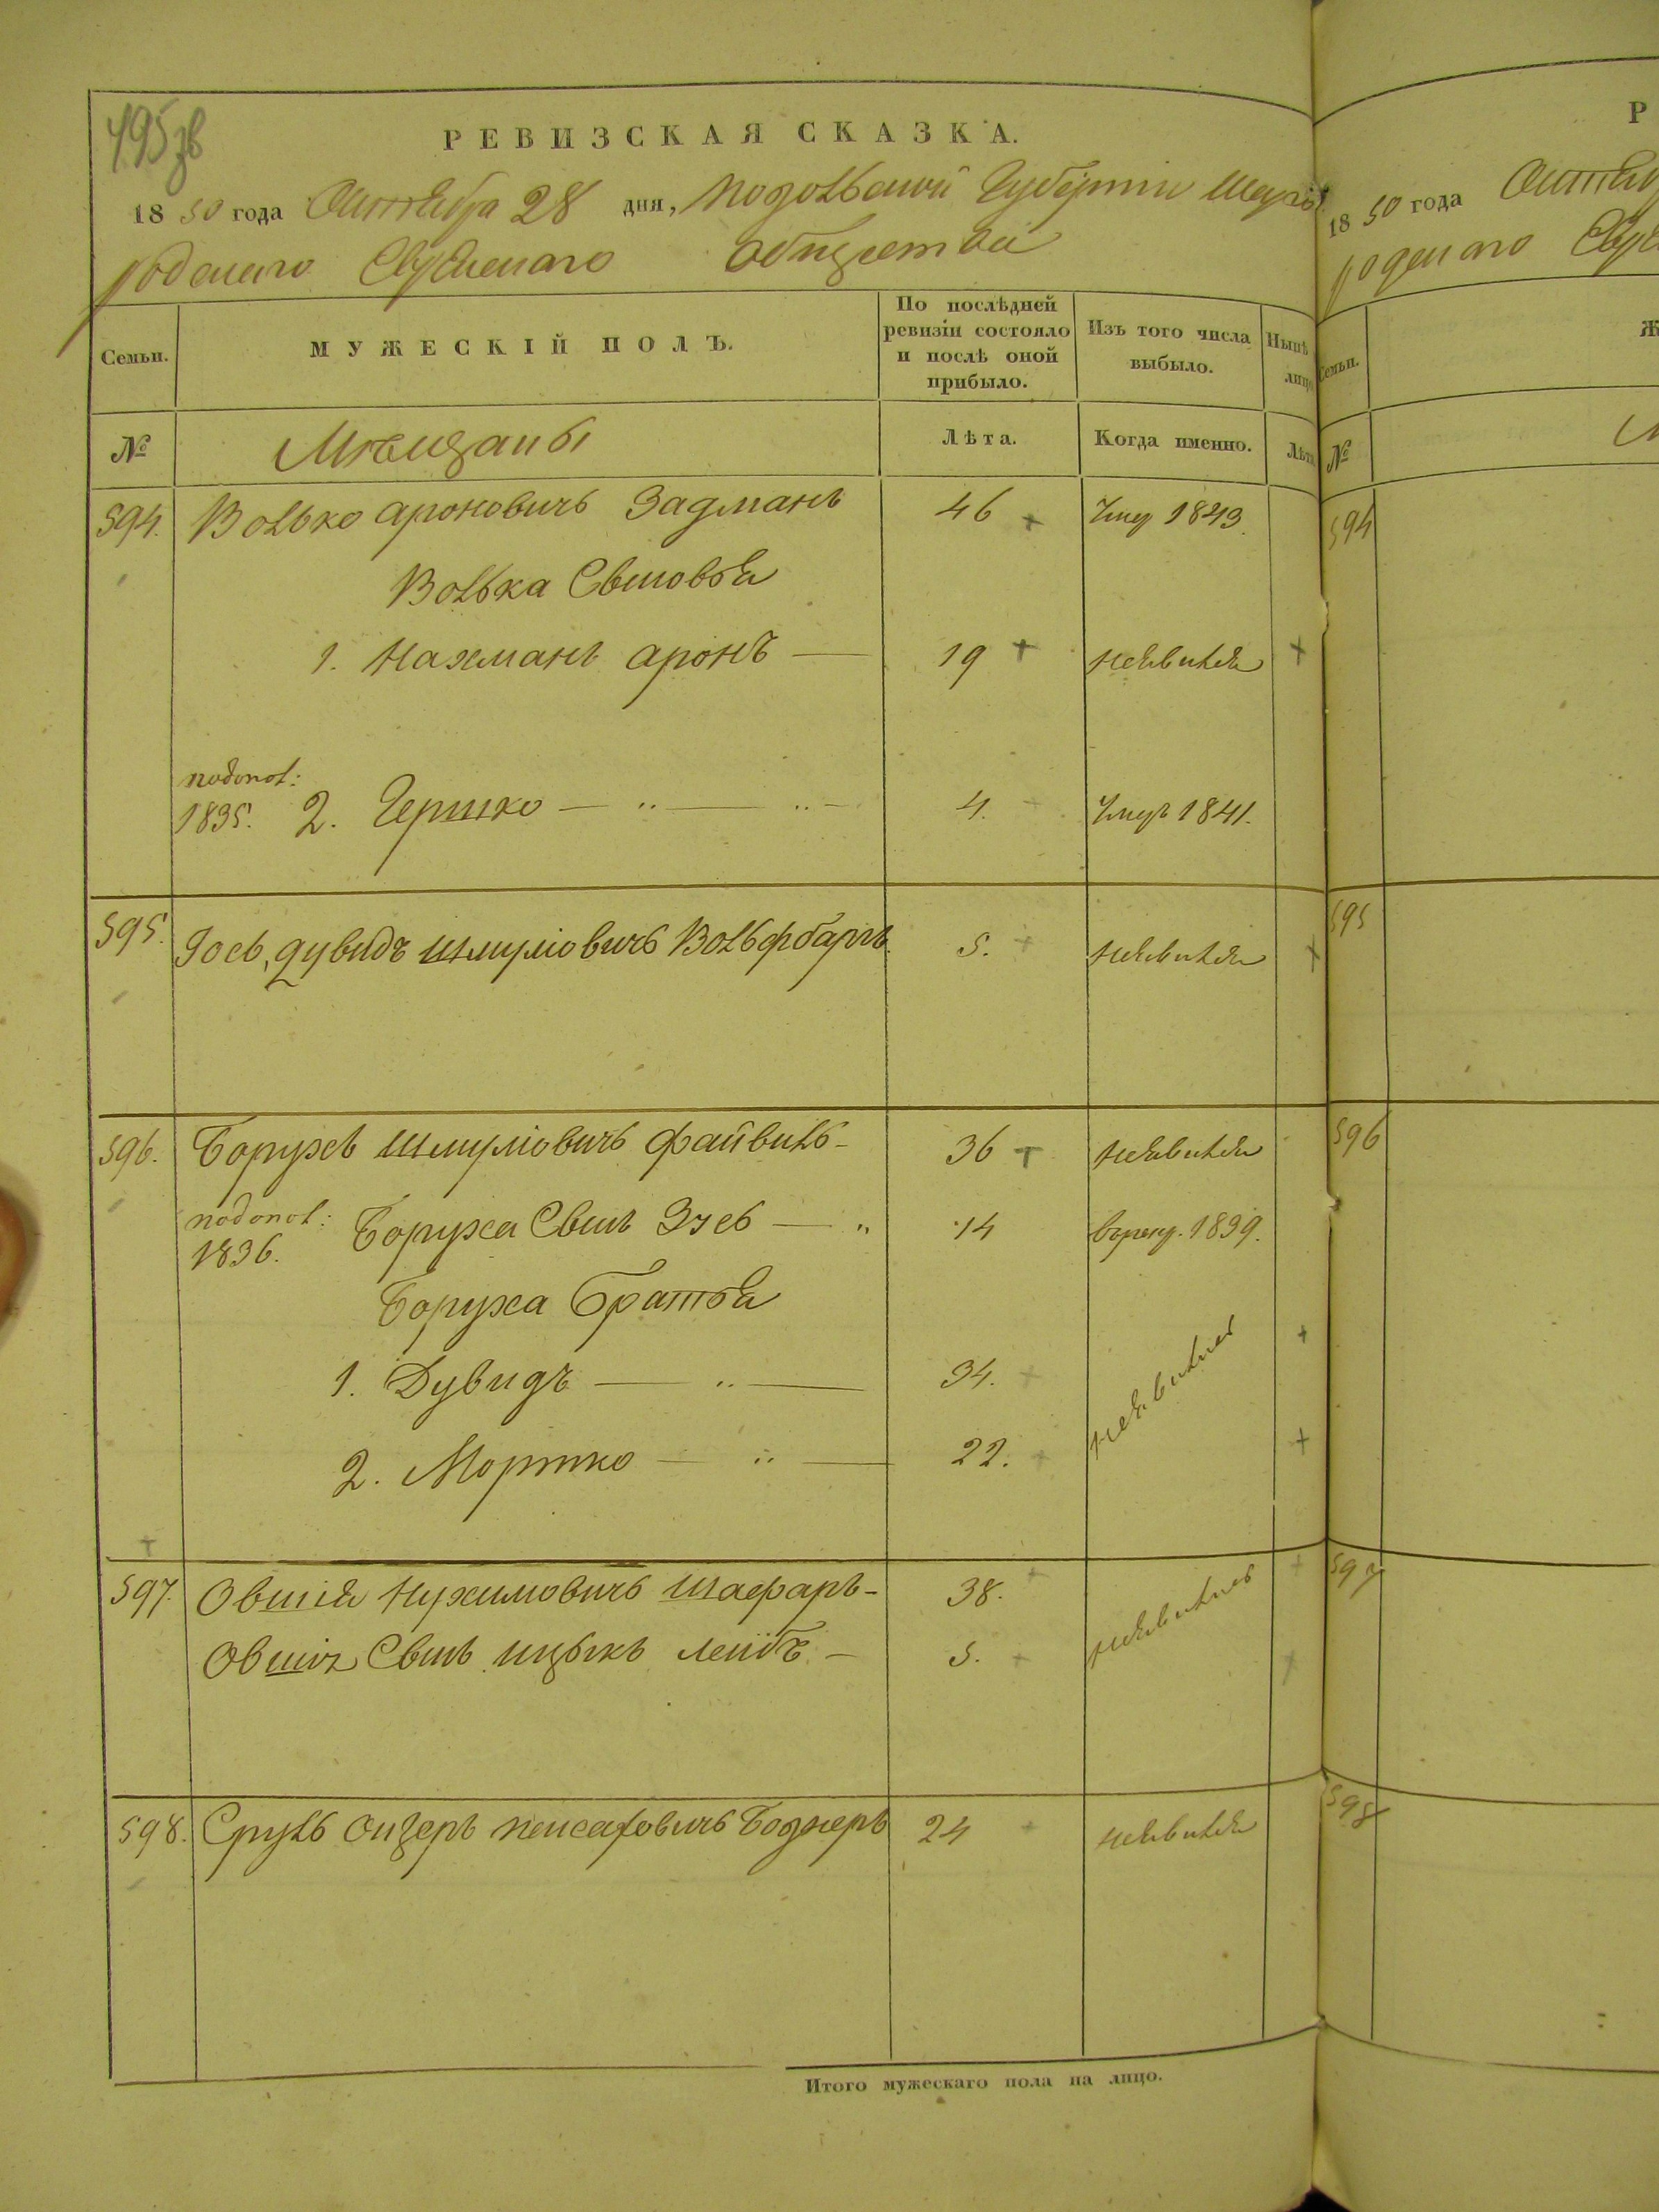 495
РЕВИЗСКАЯ СКАЗКА.
1850 года Октября 28 дня, Подольской Губерніи Межи
родскаго Еврейскаго общества
Семьи. МУЖЕСКІЙ ПОЛЪ. По послѣдней ревизіи состояло и послѣ оной прибыло. Изъ того числа выбыло. Нынѣ лицо
№ Мѣщаны Лѣта. Когда именно. Лѣта
594. Волько Ароновичъ Задманъ 46 Умер 1843.
Волька Сыновья
1. Нахманъ Аронъ — 19 неявился
подопол:
1835. 2. Гершко — „ — „ — 4. Умеръ 1841.
595. Іось, Дувидъ Шмуліовичъ Вольфбаргъ. 5. неявился
596. Борухъ Шмуліовичъ Файвиль- 36 неявился
подопол: Боруха Сынъ Эзеб — „ 14 врекр. 1839.
1836.
Боруха Братья
1. Дувидъ — „ — 34. неявились
2. Мортко — „ — 22.
597. Овшія Нухимовичъ Шафаръ- 38. неявились
Овшія Сынъ Ицыкъ Лейбъ — 5.
598. Сруль Ойзеръ Пейсаховичъ Боднеръ 24 неявился
Итого мужескаго пола на лицо.
Р
1850 года Октяб
родскаго Евре
Семьи. Ж
№
594
595
596
597
598